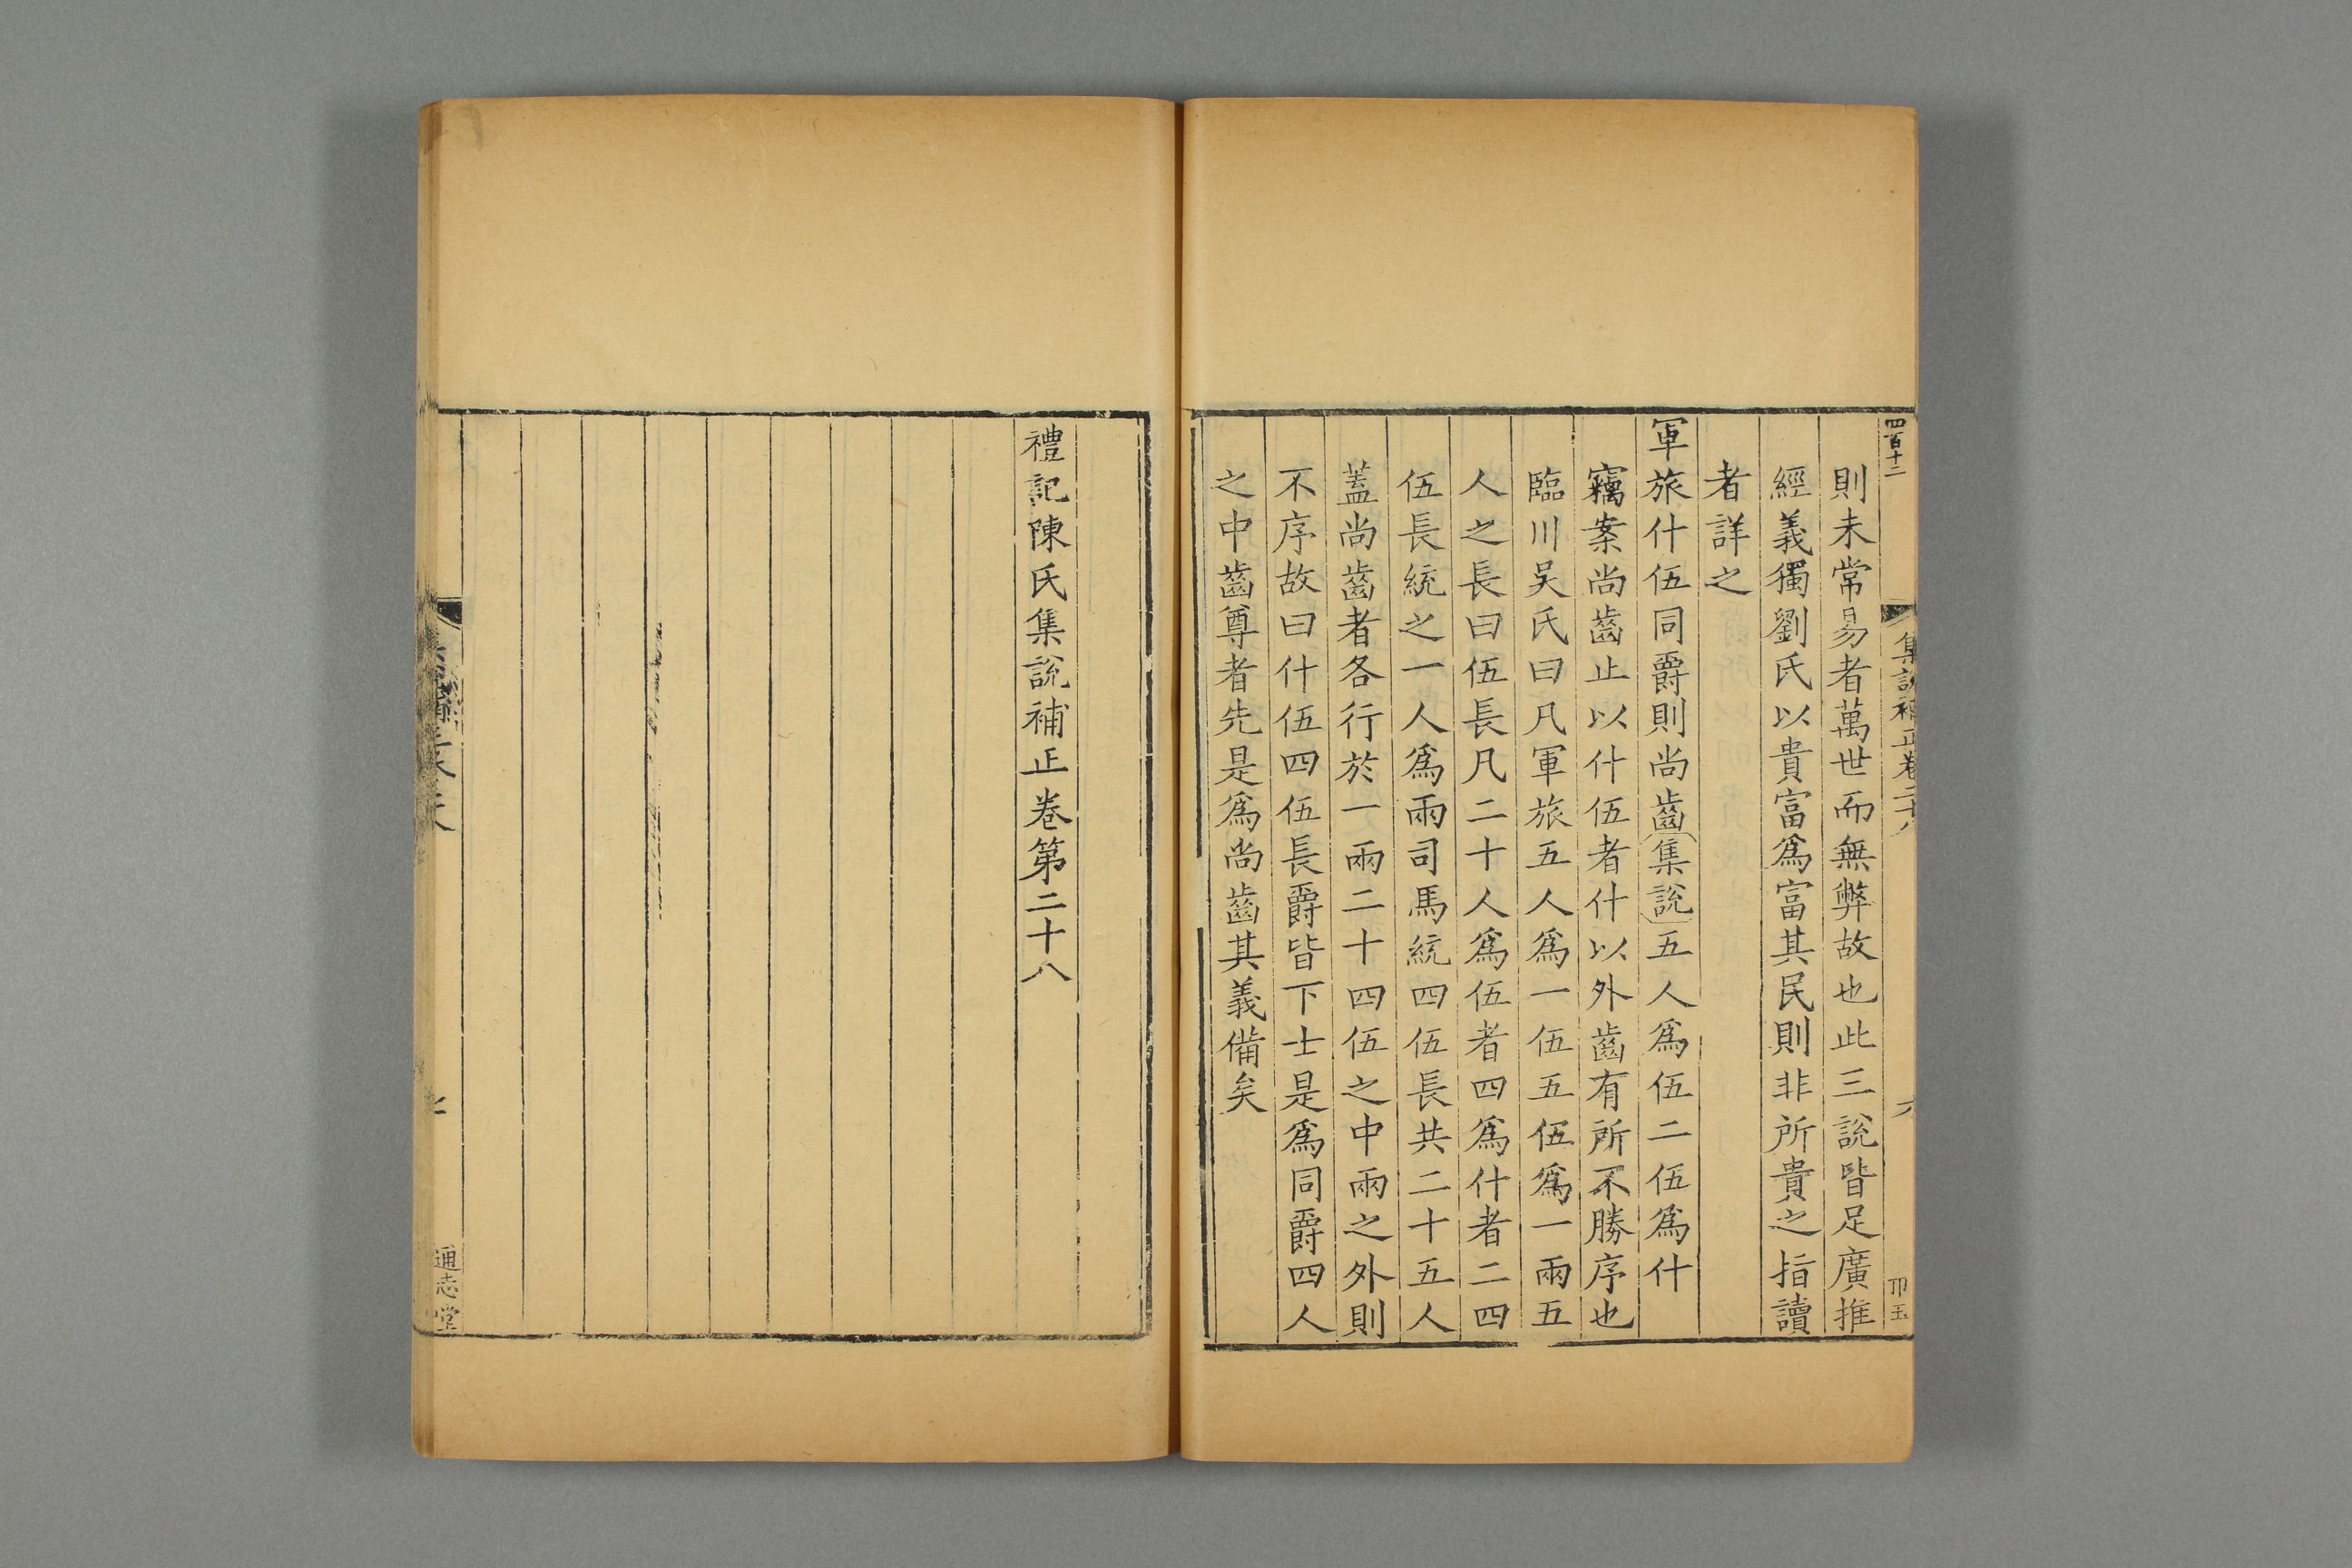 四百十二
集說補正卷二十八
六
則未常易者萬世而無弊故也此三說皆足廣推
經義獨劉氏以貴富爲富其民則非所貴之指讀
者詳之
軍旅什伍同爵則尚齒集說五人爲伍二伍爲什
竊案尚齒止以什伍者什以外齒有所不勝序也
臨川吴氏曰凡軍旅五人爲一伍五伍爲一兩五
人之長曰伍長凡二十人爲伍者四爲什者二四
伍長統之一人爲兩司馬統四伍長共二十五人
蓋尚齒者各行於一兩二十四伍之中兩之外則
不序故曰什伍四伍長爵皆下士是爲同爵四人
之中齒尊者先是爲尚齒其義備矣
禮記陳氏集說補正卷第二十八
通志堂